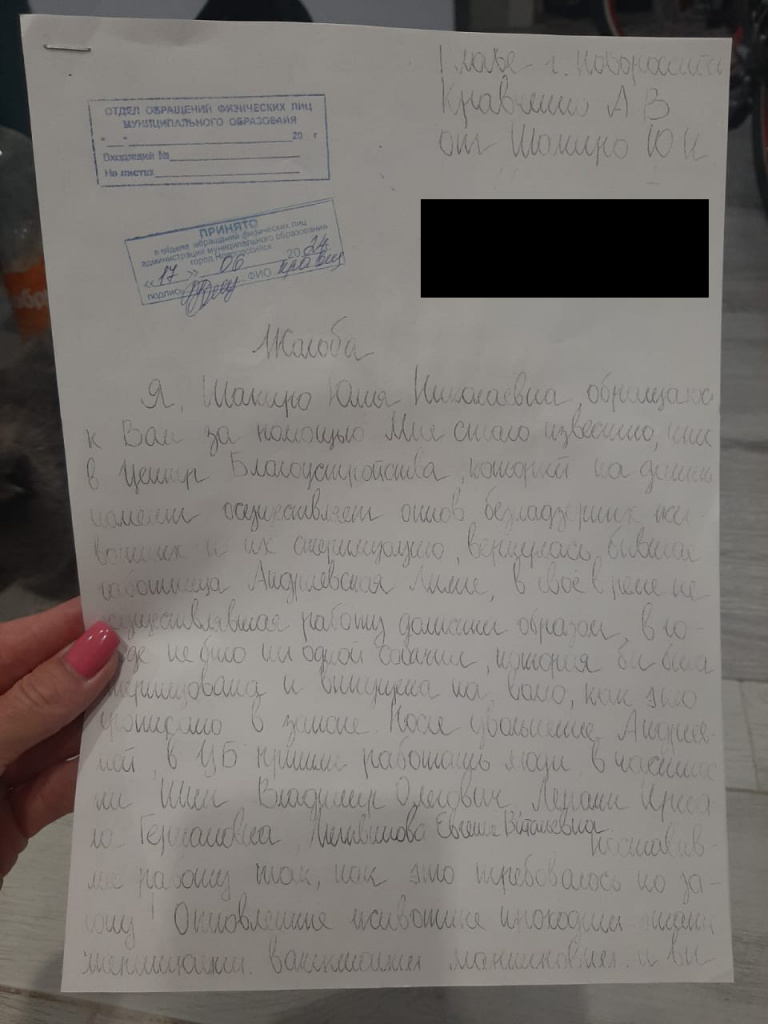 ОТДЕЛ ОБРАЩЕНИЙ ФИЗИЧЕСКИХ ЛИЦ
МУНИЦИПАЛЬНОГО ОБРАЗОВАНИЯ
"__"____20 г
Входящий №
На листах
ПРИНЯТО
в отделе обращений физических лиц
администрации муниципального образования
город Новороссийск
«17» 06 2024
подпись ФИО
Главе г. Новороссийска
Кравченко А В
от Шакиро Ю Н
Жалоба
Я, Шакиро Юлия Николаевна, обращаюсь
к Вам за помощью Мне стало известно, что
в Центр Благоустройства, который на данный
момент осуществляет отлов безнадзорных жи-
вотных и их стерилизацию, вернулась бывшая
работница Андриевская Лилия, в своё время не
осуществлявшая работу должным образом, в го-
роде не было ни одной собачки, которая бы была
стерилизована и выпущена на волю, как это
прописано в законе. После увольнения Андриев-
ской, в ЦБ пришли работать люди, в частнос-
ти Владимир Олегович,
Германовна, Евгения Витальевна поставив-
шие работу так, как это требовалось по за-
кону! Отловленные животные проходили этапы
стерилизации, вакцинации и вы